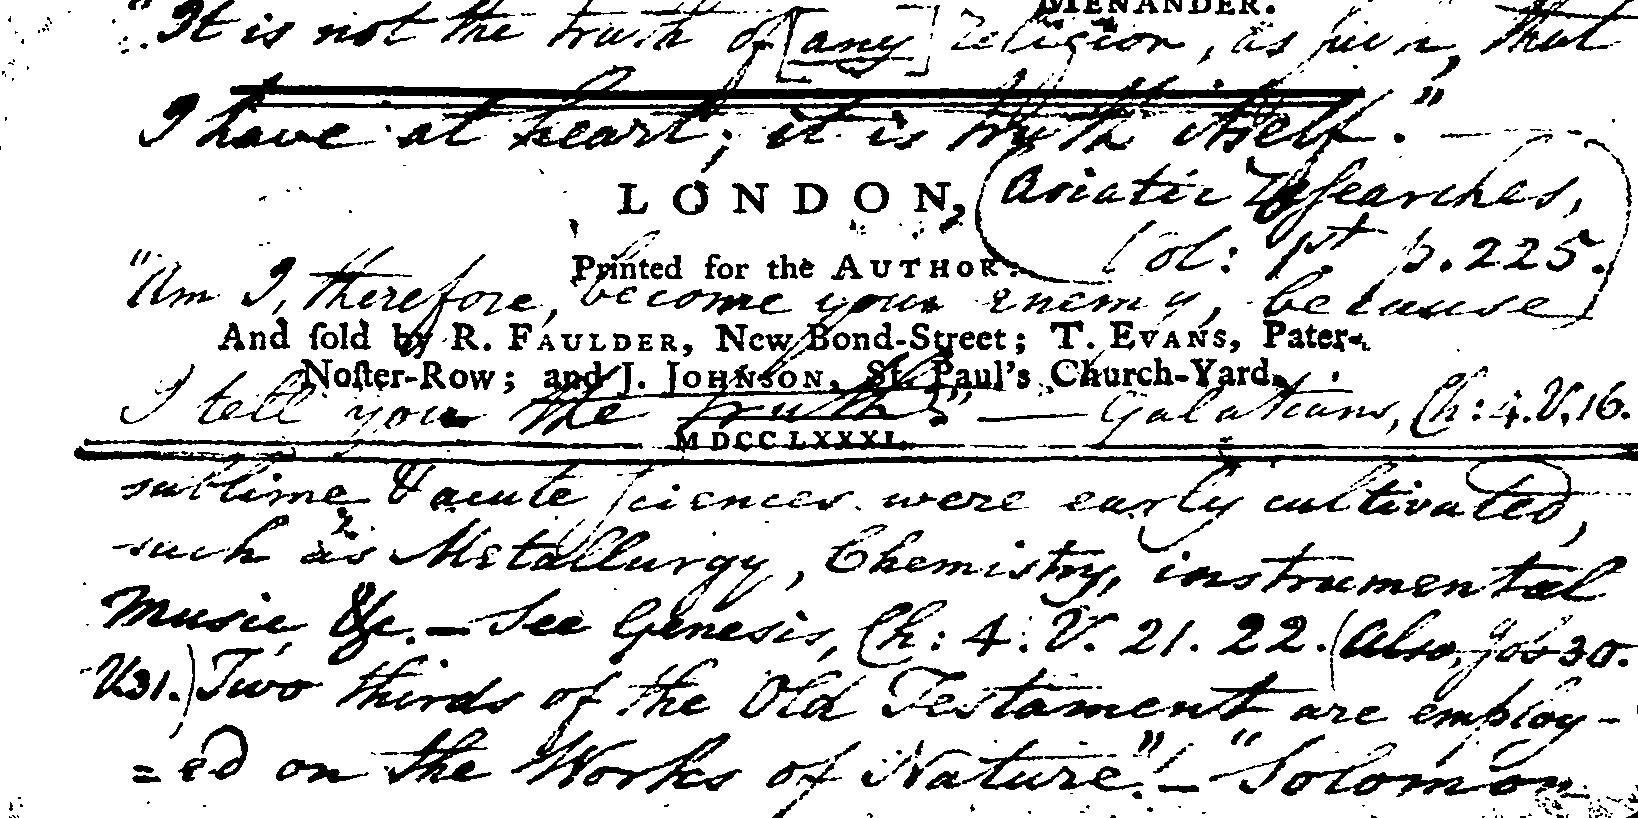 MENANDER.
"It is not the truth of [any] religion, as such, that
I have at heart; it is truth itself."—
LONDON,
Asiatic Researches,
Vol: 1st p. 225.
Printed for the AUTHOR:
"Am I, therefore, become your enemy, because
And ſold by R. FAULDER, New Bond-Street; T. EVANS, Pater-
Noſter-Row; and J. JOHNSON, St. Paul's Church-Yard.
I tell you the truth?" — Galatians, Ch: 4. V. 16.
MDCCLXXXI.
sublime & acute sciences were early cultivated,
such as Metallurgy, Chemistry, instrumental
Music, &c. — See Genesis, Ch: 4. V. 21. 22. (Also, Job 30.
V31.) Two thirds of the Old Testament are employ-
=ed on the Works of Nature." — "Solomon